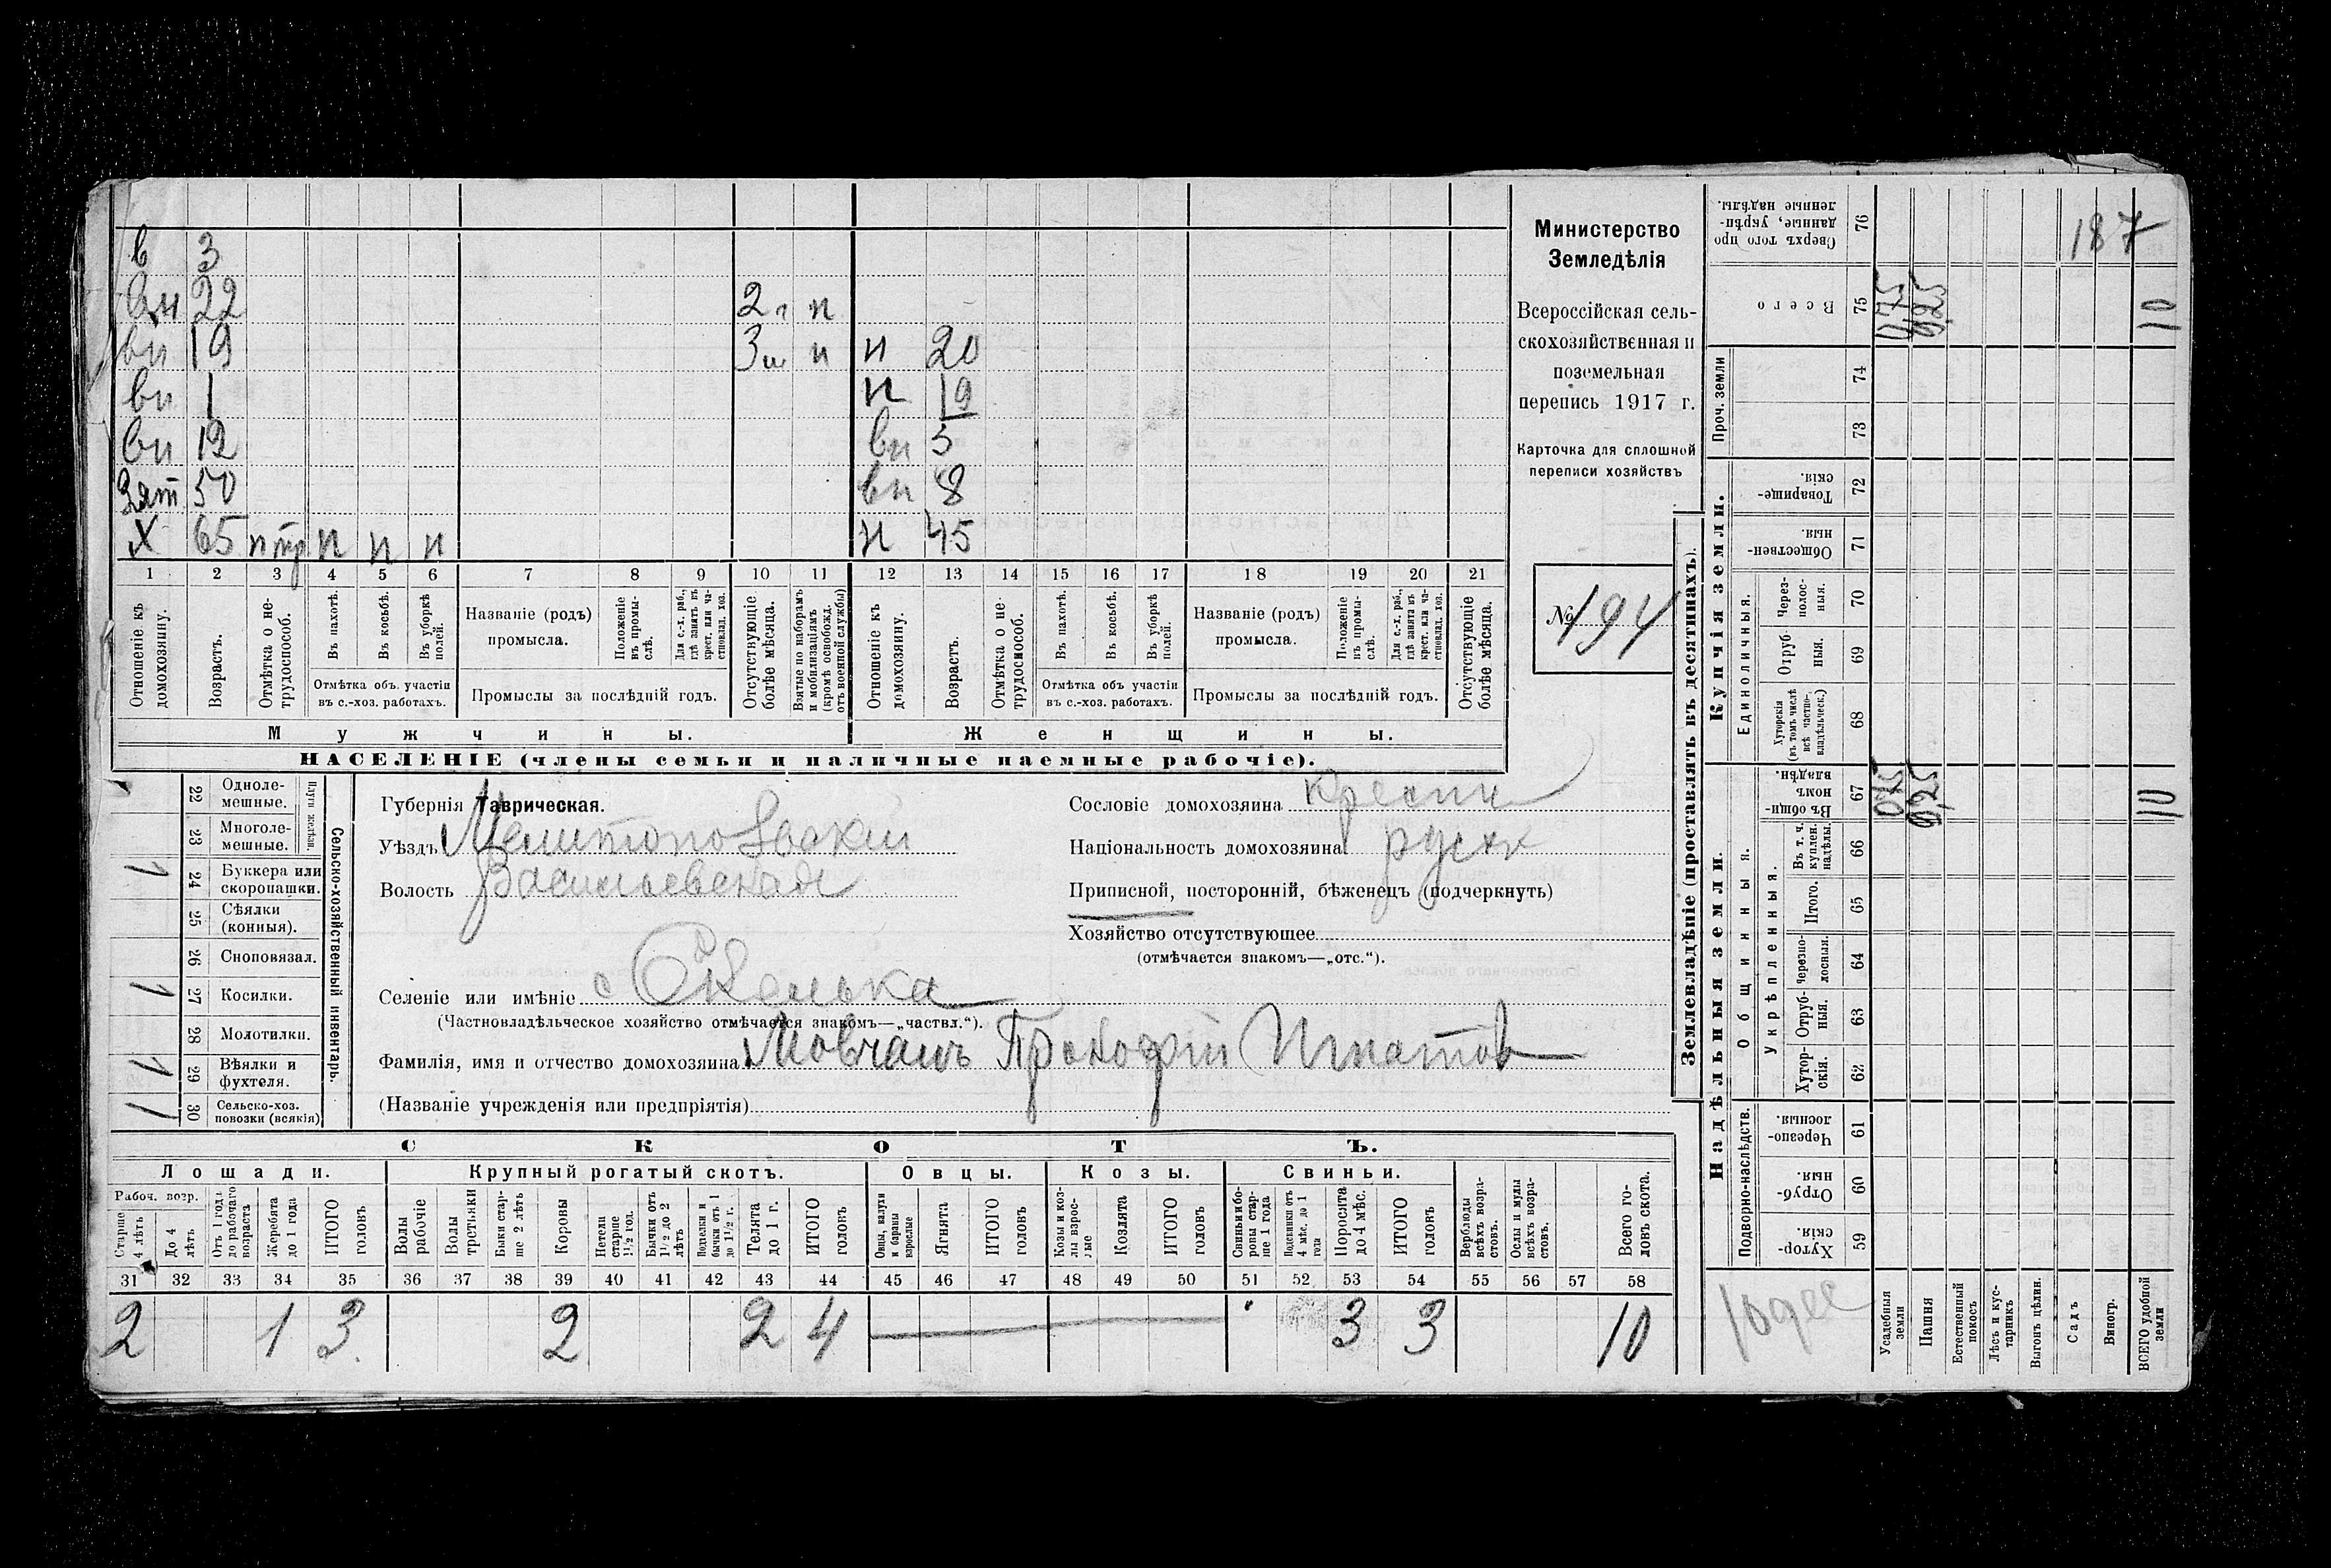 187
Министерство
Земледѣлія
Всероссійская сель-
скохозяйственная и
поземельная
перепись 1917 г.
Карточка для сплошной
переписи хозяйствъ
№ 194
в 3
вн 22 2 г п
вн 19 3 п н 20
вн 1 н 19
вн 12 вн 5
Зят 50 вн 8
X 65 п п п н 45
1 2 3 4 5 6 7 8 9 10 11 12 13 14 15 16 17 18 19 20 21
Отношеніе къ домохозяину.
Возрастъ.
Отмѣтка о не-трудоспособ.
Въ пахотѣ.
Въ косьбѣ.
Въ уборкѣ полей.
Отмѣтка объ участіи въ с.-хоз. работахъ.
Названіе (родъ) промысла.
Положеніе въ промы-слѣ.
Для с.-х. раб., гдѣ занятъ въ крест. или ча-стновлад. хоз.
Промыслы за послѣдній годъ.
Отсутствующіе болѣе мѣсяца.
Взятые по наборамъ и мобилизаціямъ (кромѣ освобожд. отъ военной службы)
Отношеніе къ домохозяину.
Возрастъ.
Отмѣтка о не-трудоспособ.
Въ пахотѣ.
Въ косьбѣ.
Въ уборкѣ полей.
Отмѣтка объ участіи въ с.-хоз. работахъ.
Названіе (родъ) промысла.
Положеніе въ промы-слѣ.
Для с.-х. раб., гдѣ занятъ въ крест. или ча-стновлад. хоз.
Промыслы за послѣдній годъ.
Отсутствующіе болѣе мѣсяца.
Мужчины. Женщины.
НАСЕЛЕНІЕ (члены семьи и наличные наемные рабочіе).
Губернія Таврическая.
Уѣздъ Мелитопольскій
Волость Васильевская
Селеніе или имѣніе с Скелька
(Частновладѣльческое хозяйство отмѣчается знакомъ—„частвл.“).
Фамилія, имя и отчество домохозяина Мовчанъ Прокофій Игнатов
(Названіе учрежденія или предпріятія)
Сословіе домохозяина крестн
Національность домохозяина русск
Приписной, посторонній, бѣженецъ (подчеркнуть)
Хозяйство отсутствующее
(отмѣчается знакомъ—„отс.“).
Сельско-хозяйственный инвентарь.
Плуги желѣзн.
22 Одноле-мешные.
23 Многоле-мешные.
1 24 Буккера или скоропашки.
25 Сѣялки (конныя).
26 Сноповязал.
1 27 Косилки.
28 Молотилки.
1 29 Вѣялки и фухтеля.
1 30 Сельско-хоз. повозки (всякія)
СКОТЪ.
Лошади. Крупный рогатый скотъ. Овцы. Козы. Свиньи.
Рабоч. возр.
Старше 4 лѣтъ
До 4 лѣтъ
Отъ 1 года до рабочаго возраста
Жеребята до 1 года
ИТОГО головъ
Волы рабочіе
Волы третьяки
Быки стар-ше 2 лѣтъ
Коровы
Нетели старше 1½ год.
Бычки отъ 1½ до 2 лѣтъ
Подтелки и бычки отъ 1 до 1½ г.
Телята до 1 г.
ИТОГО головъ
Овцы, валухи и бараны взрослые
Ягнята
ИТОГО головъ
Козы и коз-лы взрос-лые
Козлята
ИТОГО головъ
Свиньи и бо-ровы стар-ше 1 года
Подсвинки отъ 4 мѣс. до 1 года
Поросята до 4 мѣс.
ИТОГО головъ
Верблюды всѣхъ возра-стовъ.
Ослы и мулы всѣхъ возра-стовъ.
Всего го-ловъ скота.
31 32 33 34 35 36 37 38 39 40 41 42 43 44 45 46 47 48 49 50 51 52 53 54 55 56 57 58
2 1 3 2 2 4 3 3 10
Землевладѣніе (проставлять въ десятинахъ).
Надѣльныя земли. Купчія земли. Проч. земли
Подворно-наслѣдств. Общинныя. Укрѣпленныя. Единоличныя.
Хутор-скія. 59
Отруб-ныя. 60
Черезпо-лосныя. 61
Хутор-скія. 62
Отруб-ныя. 63
Черезпо-лосныя. 64
Итого. 65
Въ т. ч. куплен. надѣлы. 66
Въ общин-номъ владѣн. 67 0,75 9,25 10
Хуторскія (въ томъ числѣ всѣ частно-владѣльческ.) 68
Отруб-ныя. 69
Через-полос-ныя. 70
Обществен-ныя. 71
Товарище-скія. 72
73
74
Всего 75 0,75 9,25 10
Сверхъ того про данные, укрѣп-ленные надѣлы. 76
10 дес
Усадебныя земли
Пашня
Естественный покосъ
Лѣсъ и кус-тарникъ
Выгонъ цѣлин.
Садъ
Виногр.
ВСЕГО удобной земли